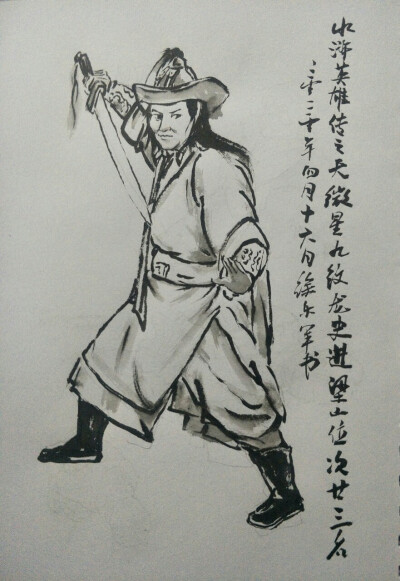 水浒英雄传之天微星九纹龙史进梁山位次廿三名
二零二一年四月十六日徐东军书